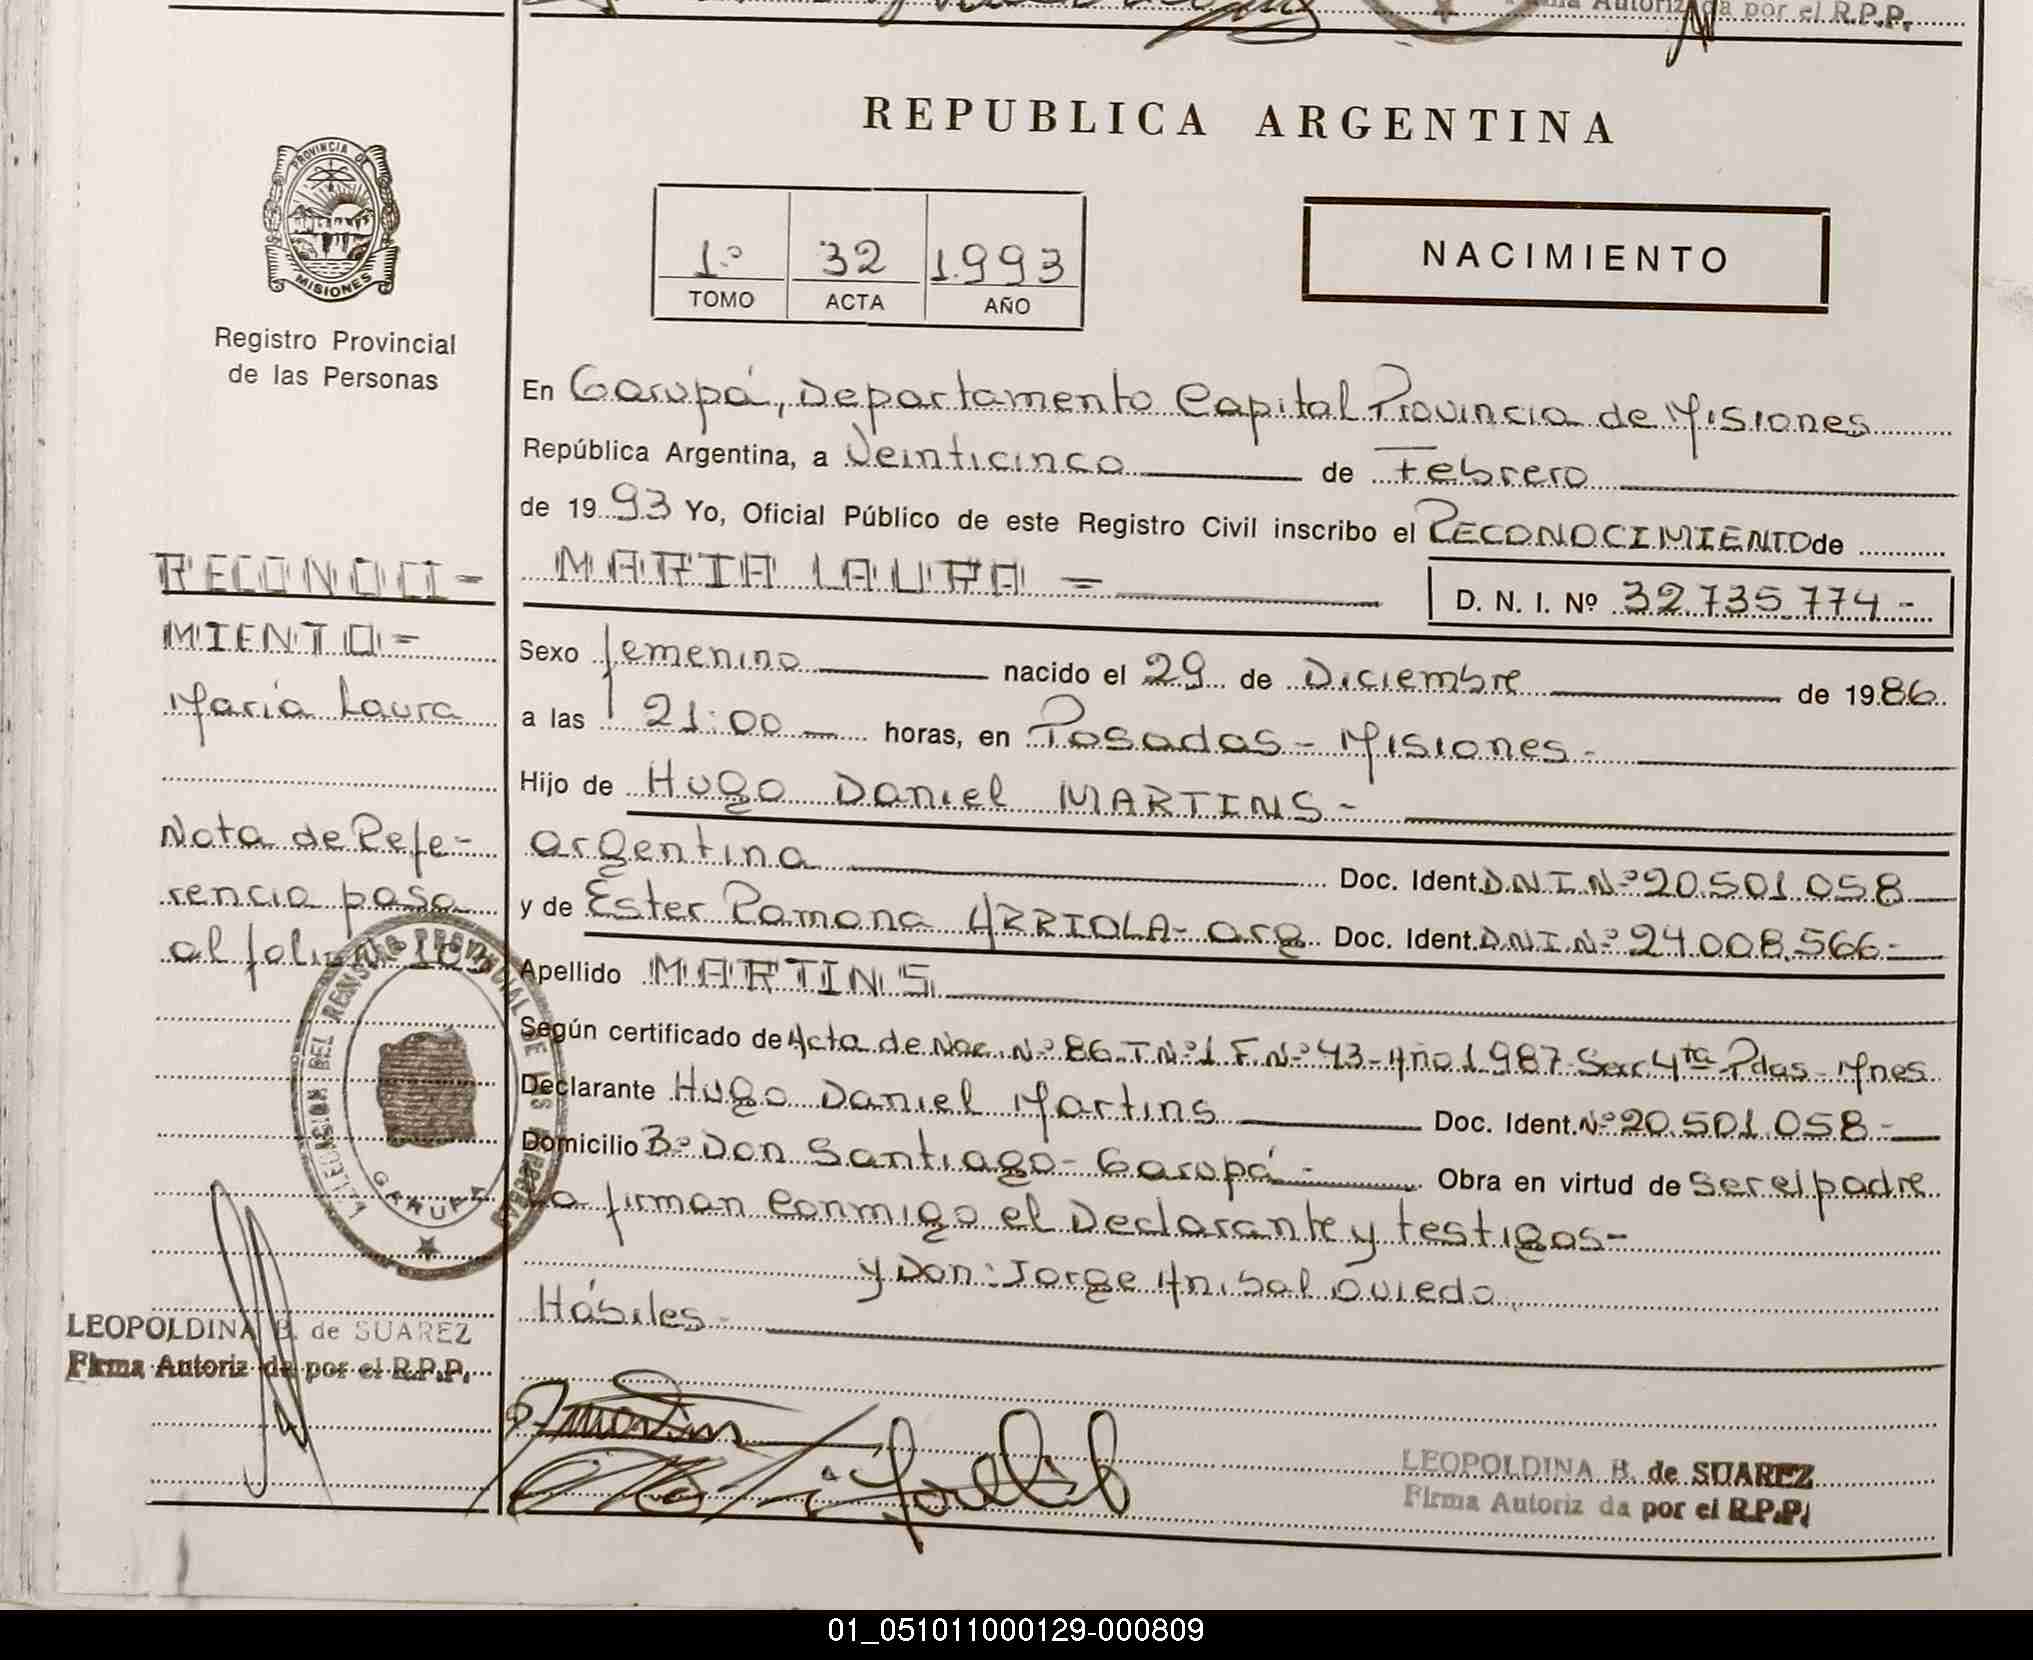 Autoriz da por el R.P.P.
REPUBLICA ARGENTINA
PROVINCIA DE
MISIONES
1º 32 1.993
TOMO ACTA AÑO
NACIMIENTO
Registro Provincial
de las Personas
En Garupá, Departamento Capital Provincia de Misiones
República Argentina, a Veinticinco de Febrero
de 1993 Yo, Oficial Público de este Registro Civil inscribo el RECONOCIMIENTO de
MARIA LAURA =
D. N. I. Nº 32.735.774.-
Sexo femenino nacido el 29 de Diciembre de 1986
a las 21:00 horas, en Posadas - Misiones -
Hijo de Hugo Daniel MARTINS -
argentina Doc. Ident. D.N.I. Nº 20.501.058
y de Ester Ramona ARRIOLA - arg Doc. Ident. D.N.I. Nº 24.008.566 -
Apellido MARTINS
Según certificado de Acta de Nac. Nº 86 T Nº 1 F. Nº 43 - Año 1987 - Secc 4ta Pdas - Mnes
Declarante Hugo Daniel Martins Doc. Ident. Nº 20.501.058 -
Domicilio Bº Don Santiago - Garupá - Obra en virtud de ser el padre
La firman conmigo el Declarante y testigos -
y Don: Jorge Anibal Oviedo
Hábiles -
RECONOCI =
MIENTO =
María Laura
Nota de Refe -
rencia pasa
al folio
GARUPA
LEOPOLDINA B. de SUAREZ
Firma Autoriz da por el R.P.P.
LEOPOLDINA B. de SUAREZ
Firma Autoriz da por el R.P.P.
01_051011000129-000809